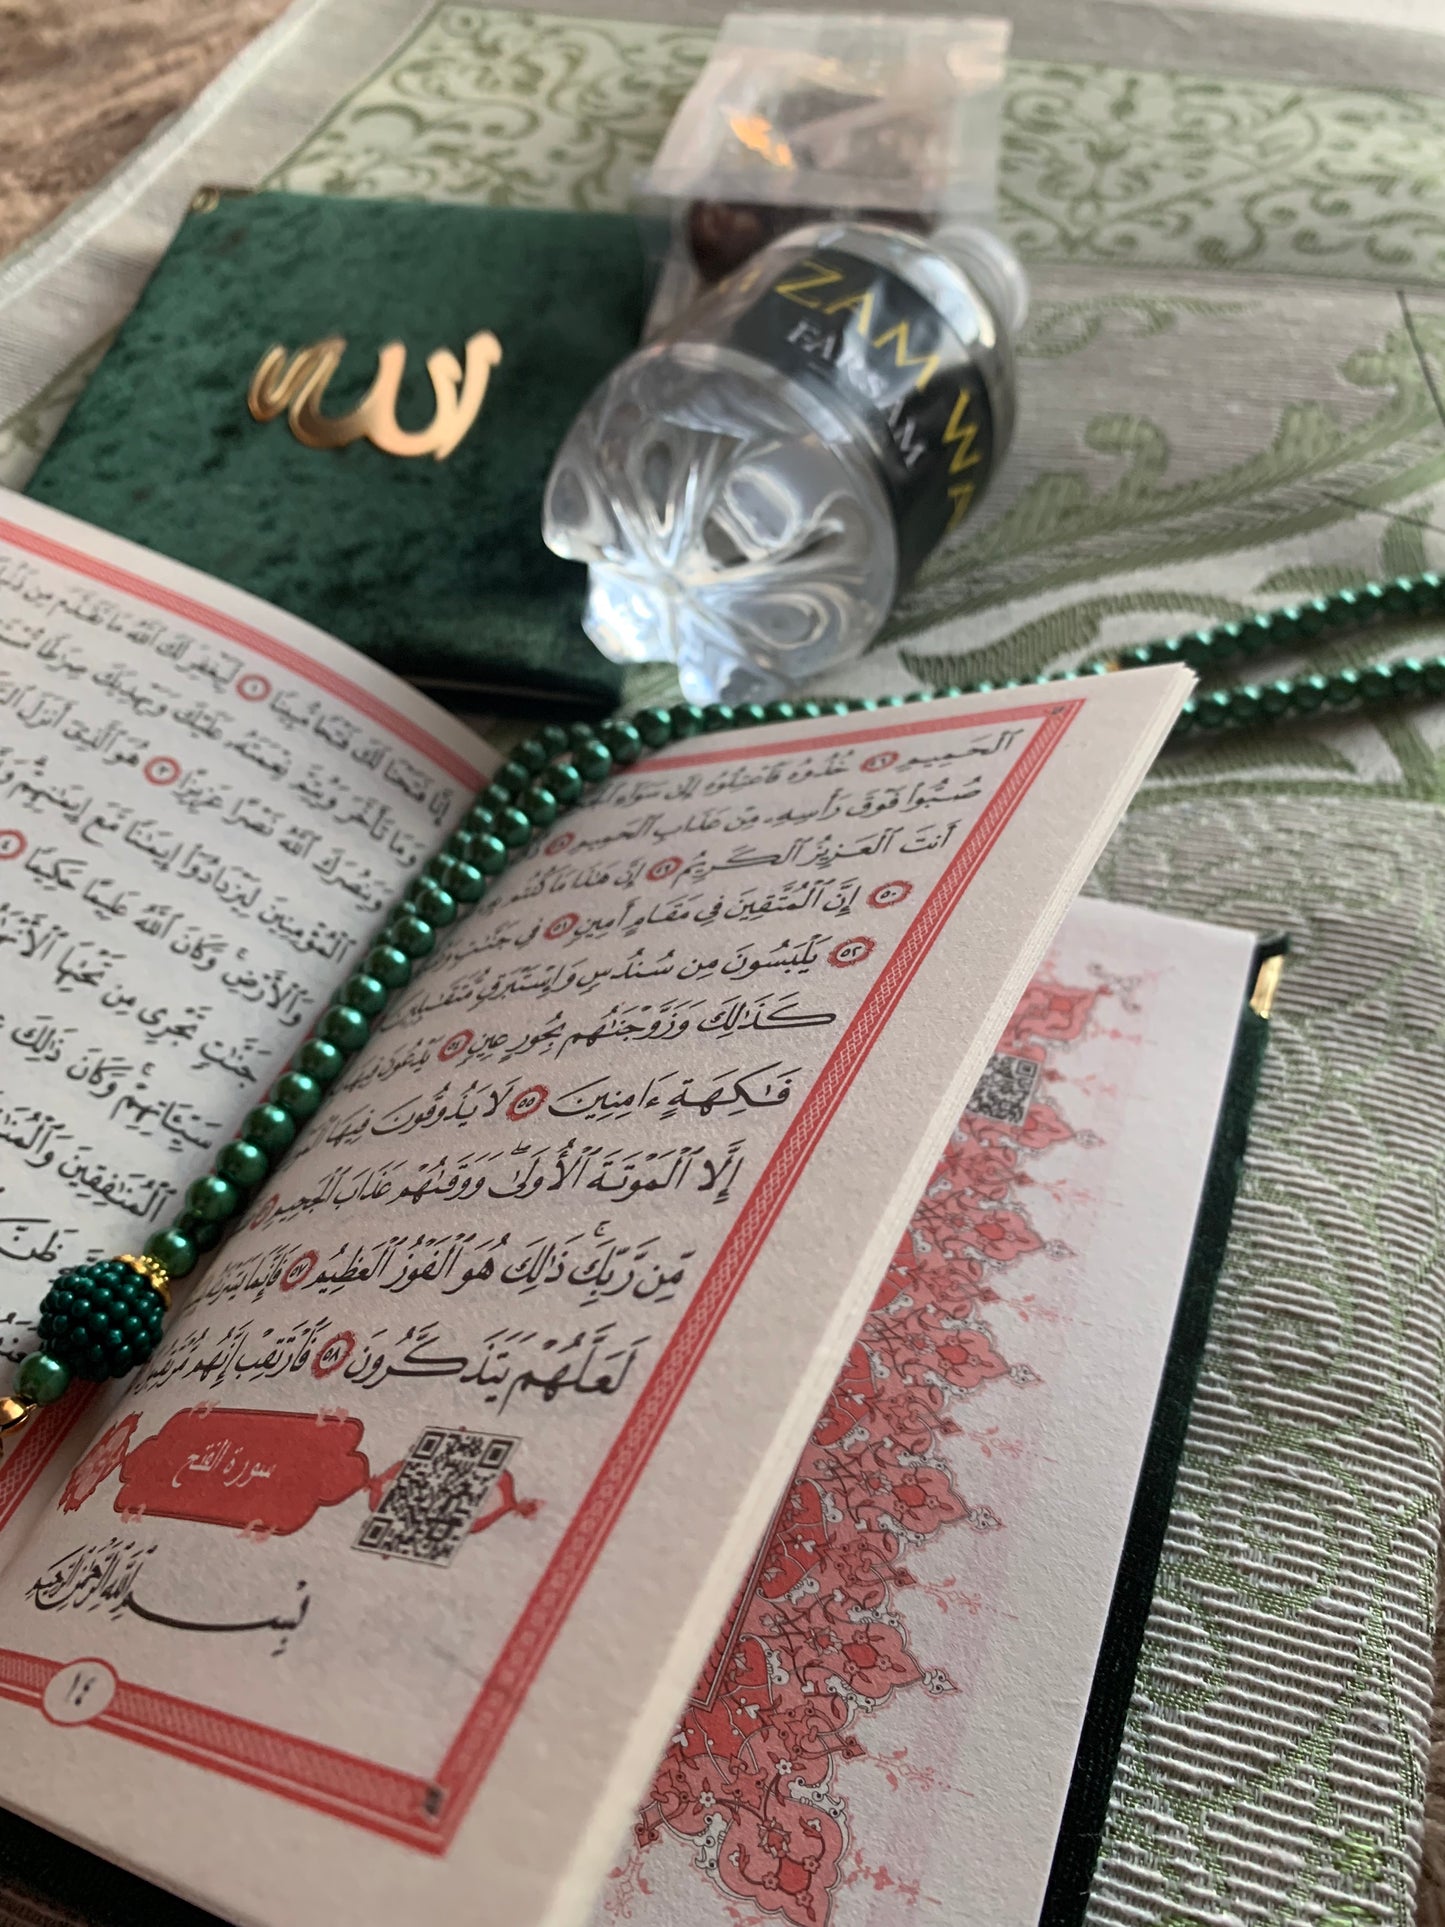 الله
ZAM W
الحميم ٤٦ خذوه فاعتلوه إلى سواء
صبوا فوق رأسه من عذاب الحميم ٤٨
أنت العزيز الكريم ٤٩ إن هذا ما كنتم
٥٠ إن المتقين في مقام أمين ٥١ في جنت
٥٢ يلبسون من سندس وإستبرق متقبلين
كذلك وزوجنهم بحور عين ٥٤ يدعون فيها
فكهة ءامنين ٥٥ لا يذوقون فيها
إلا الموتة الأولى ووقىهم عذاب الجحيم
من ربك ذلك هو الفوز العظيم ٥٧ فإنما
لعلهم يتذكرون ٥٨ فارتقب إنهم
سورة الفتح
بسم الله الرحمن الرحيم
١٤
إنا فتحنا لك فتحا مبينا ١ ليغفر لك الله ما تقدم من
وما تأخر ويتم نعمته عليك ويهديك صرطا
وينصرك الله نصرا عزيزا ٣ هو الذي أنزل
المؤمنين ليزدادوا إيمنا مع إيمنهم
والأرض وكان الله عليما حكيما ٤
جنت تجري من تحتها
سيئاتهم وكان ذلك
المنفقين
ظن